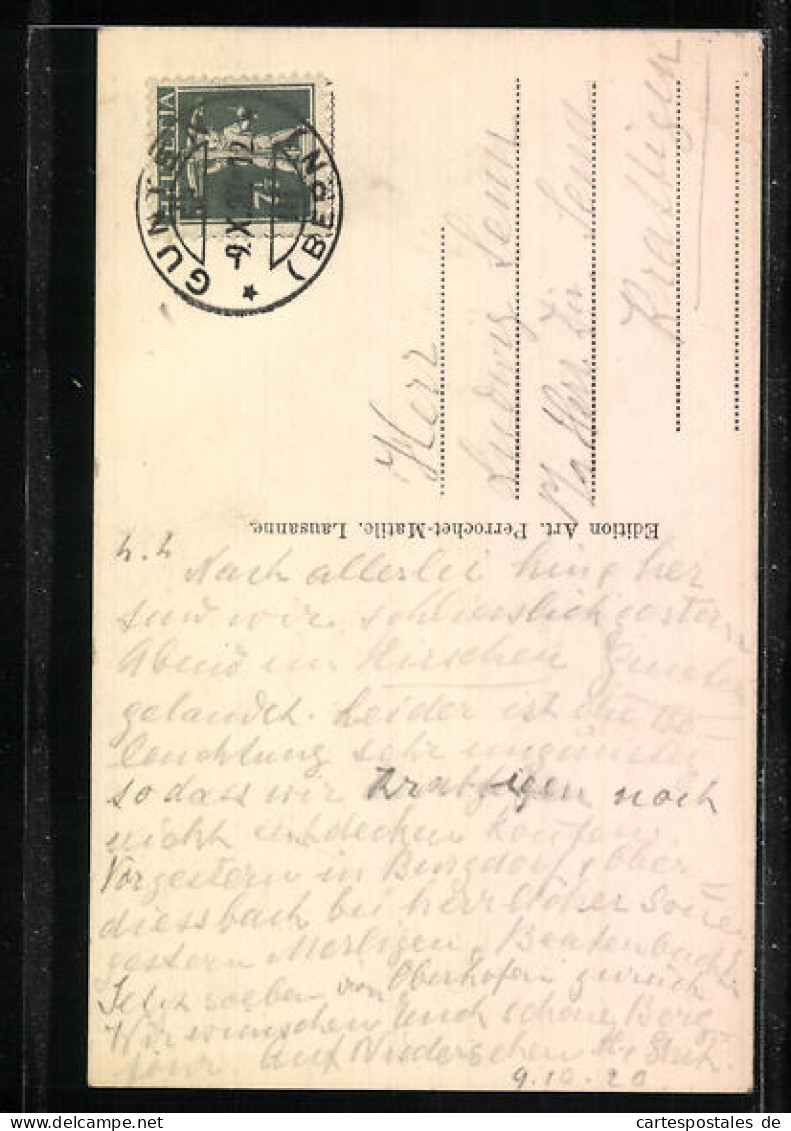 HELVETIA
7½
GUNTEN
(BERN)
9.X.20
Herr
Ludwig Senn
Senn
Krattigen
Edition Art. Perrochet-Matile. Lausanne.
Nach allerlei hin & her
sind wir schliesslich gestern
Abend im Hirschen Gunten
gelandet. Leider ist die Be-
leuchtung sehr ungünstig
sodass wir Krattigen noch
nicht entdecken konnten.
Vorgestern in Burgdorf, Ober
diessbach bei herrlicher Sonne
gestern Merligen, Beatenbucht
Jetzt soeben von Oberhofen zurück
Wir wünschen Euch schöne Berg
auf Wiedersehen
9.10.20
cartespostales de